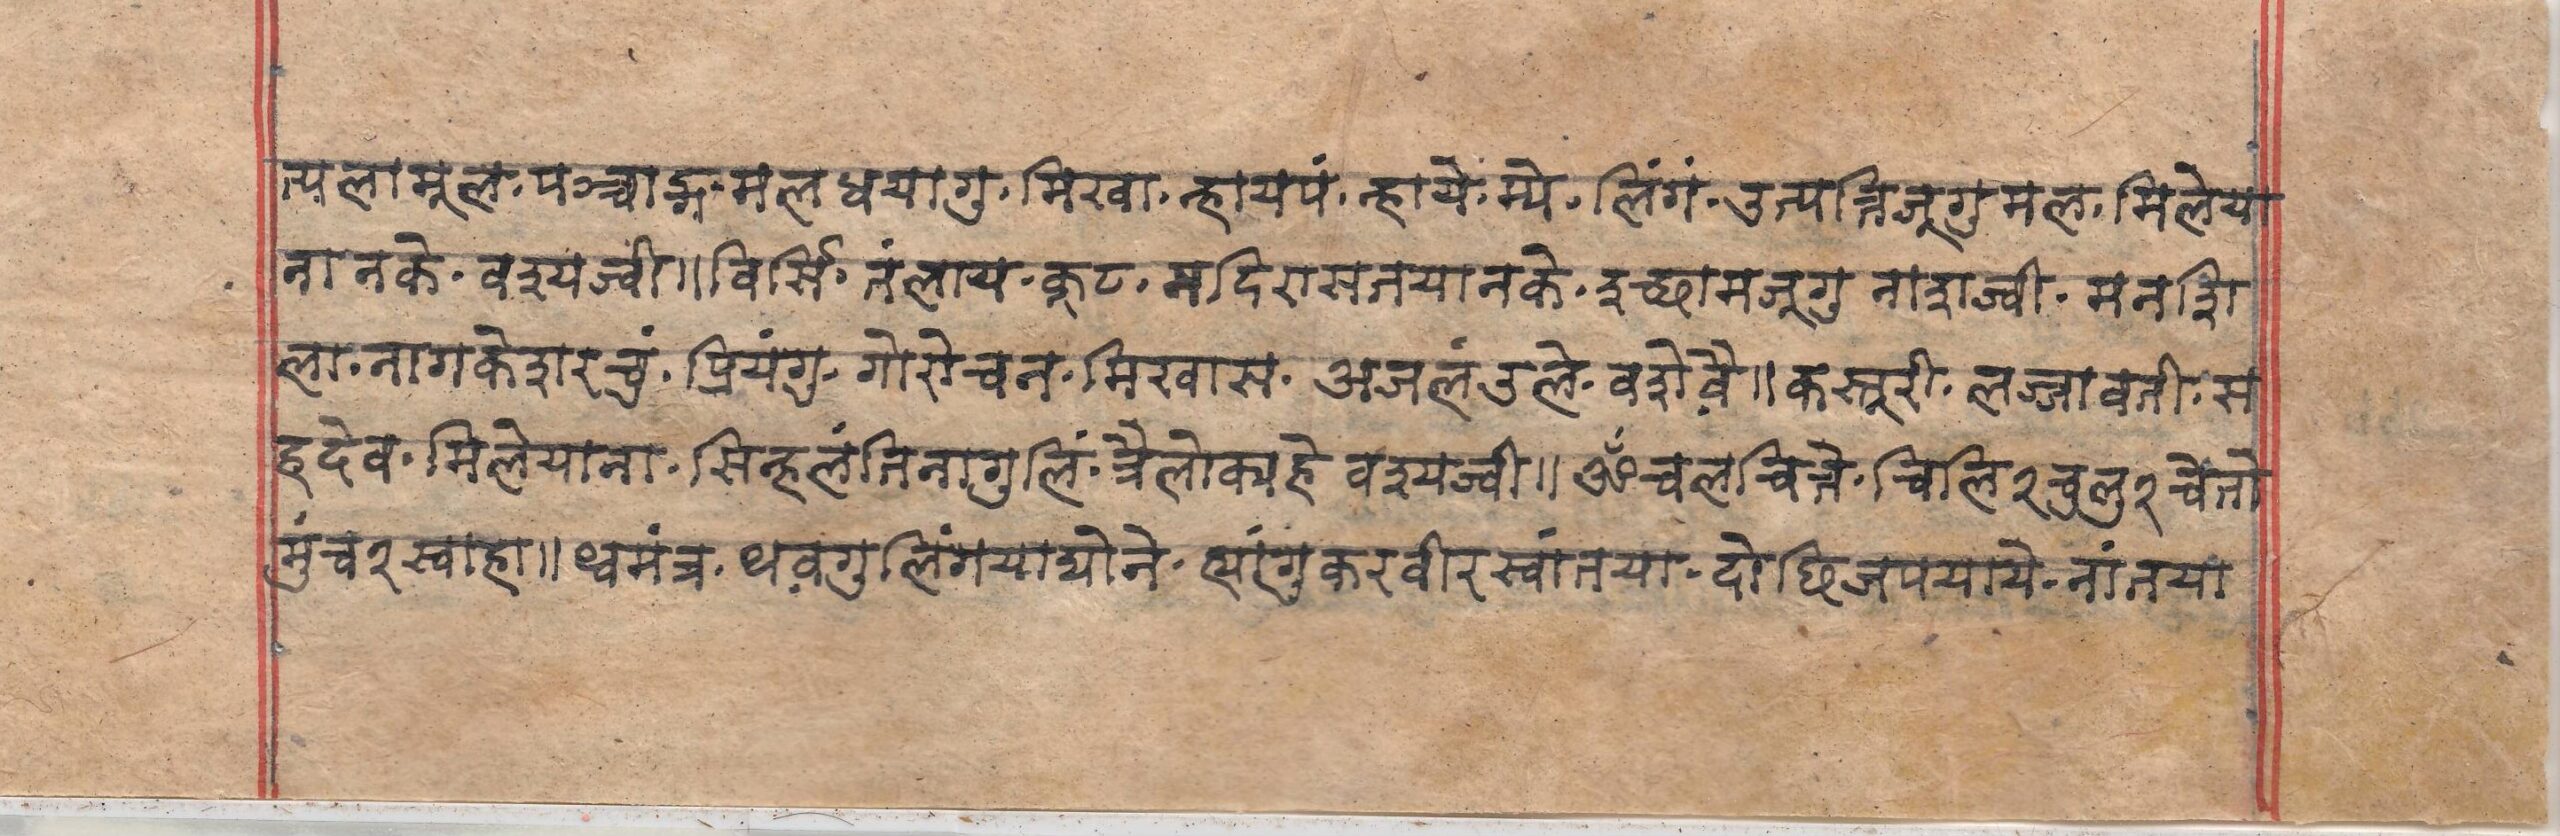 त्पलामूल. पञ्चाङ्ग. मल धयागु. मिखा. न्हायपं. न्हाये. म्ये. लिंगं. उत्पत्तिजूगु मल. मिलेया
ना नके. वश्यज्वी॥ विर्सि. तंलाय. कूट. मदिरासतयानके. इच्छामजूगु नाशज्वी. मनशि
ला. नागकेशरचुं. प्रियंगु. गोरोचन. मिखास. अजलंउले. वशेवै॥ कस्तूरी. लज्जावती. स
हदेव. मिलेयाना. सिन्हलंतिनागुलिं. त्रैलोक्यहे वश्यज्वी॥ ॐ चलचित्ते. चिलि२चुलु२चेतो
मुंच२स्वाहा॥ थ्वमंत्र. थवगुलिंगयाद्योने. ह्यांगुकरवीरस्वांतया. दोछिजपयाये. नांतया